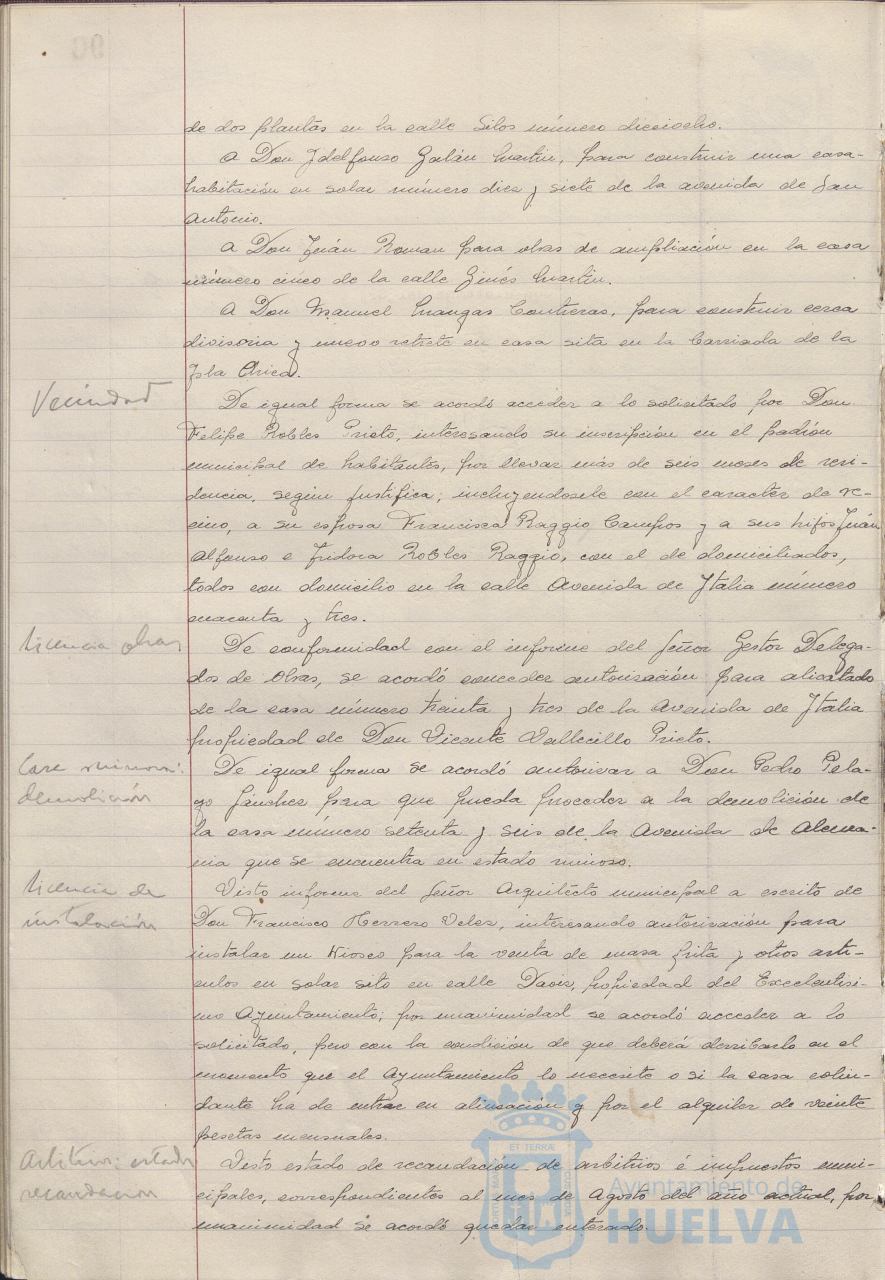 de dos plantas en la calle Silos número dieciocho.
A Don Ildelfonso Galán Martin, para construir una casa-
habitación en solar número diez y siete de la avenida de San
Antonio.
A Don Juán Roman para obras de ampliación en la casa
número cinco de la calle Ginés Martin.
A Don Manuel Mangas Contreras, para construir cerca
divisoria y nuevo retrete en casa sita en la Barriada de la
Isla Chica.
Vecindad
De igual forma se acordó acceder a lo solicitado por Don
Felipe Robles Prieto, interesando su inscripción en el padrón
municipal de habitantes, por llevar más de seis meses de resi-
dencia, según justifica; incluyendosele con el caracter de ve-
cino, a su esposa Francisca Raggio Campos y a sus hijos Juán
Alfonso e Isidora Robles Raggio, con el de domiciliados,
todos con domicilio en la calle Avenida de Italia número
cuarenta y tres.
Licencia obras
De conformidad con el informe del Señor Gestor Delega-
dos de Obras, se acordó conceder autorización para alicatado
de la casa número treinta y tres de la Avenida de Italia
propiedad de Don Vicente Vallecillo Prieto.
Casa ruinosa:
demolición
De igual forma se acordó autorizar a Don Pedro Pela-
yo Sánchez para que pueda proceder a la demolición de
la casa número setenta y seis de la Avenida de Alema-
nia que se encuentra en estado ruinoso.
Licencia de
instalación
Visto informe del Señor Arquitécto municipal a escrito de
Don Francisco Herrero Velez, interesando autorización para
instalar un Kiosco para la venta de masa frita y otros arti-
culos en solar sito en calle Daoiz, propiedad del Excelentisi-
mo Ayuntamiento; por unanimidad se acordó acceder a lo
solicitado, pero con la condición de que deberá derribarlo en el
momento que el Ayuntamiento lo necesite o si la casa colin-
dante há de entrar en alineación y por el alquiler de veinte
pesetas mensuales.
Arbitrios: estado
recaudacion
Visto estado de recaudación de arbitrios é impuestos muni-
cipales, correspondientes al mes de Agosto del año actual, por
unanimidad se acordó quedar enterado.
ET TERRAE
Ayuntamiento de
HUELVA